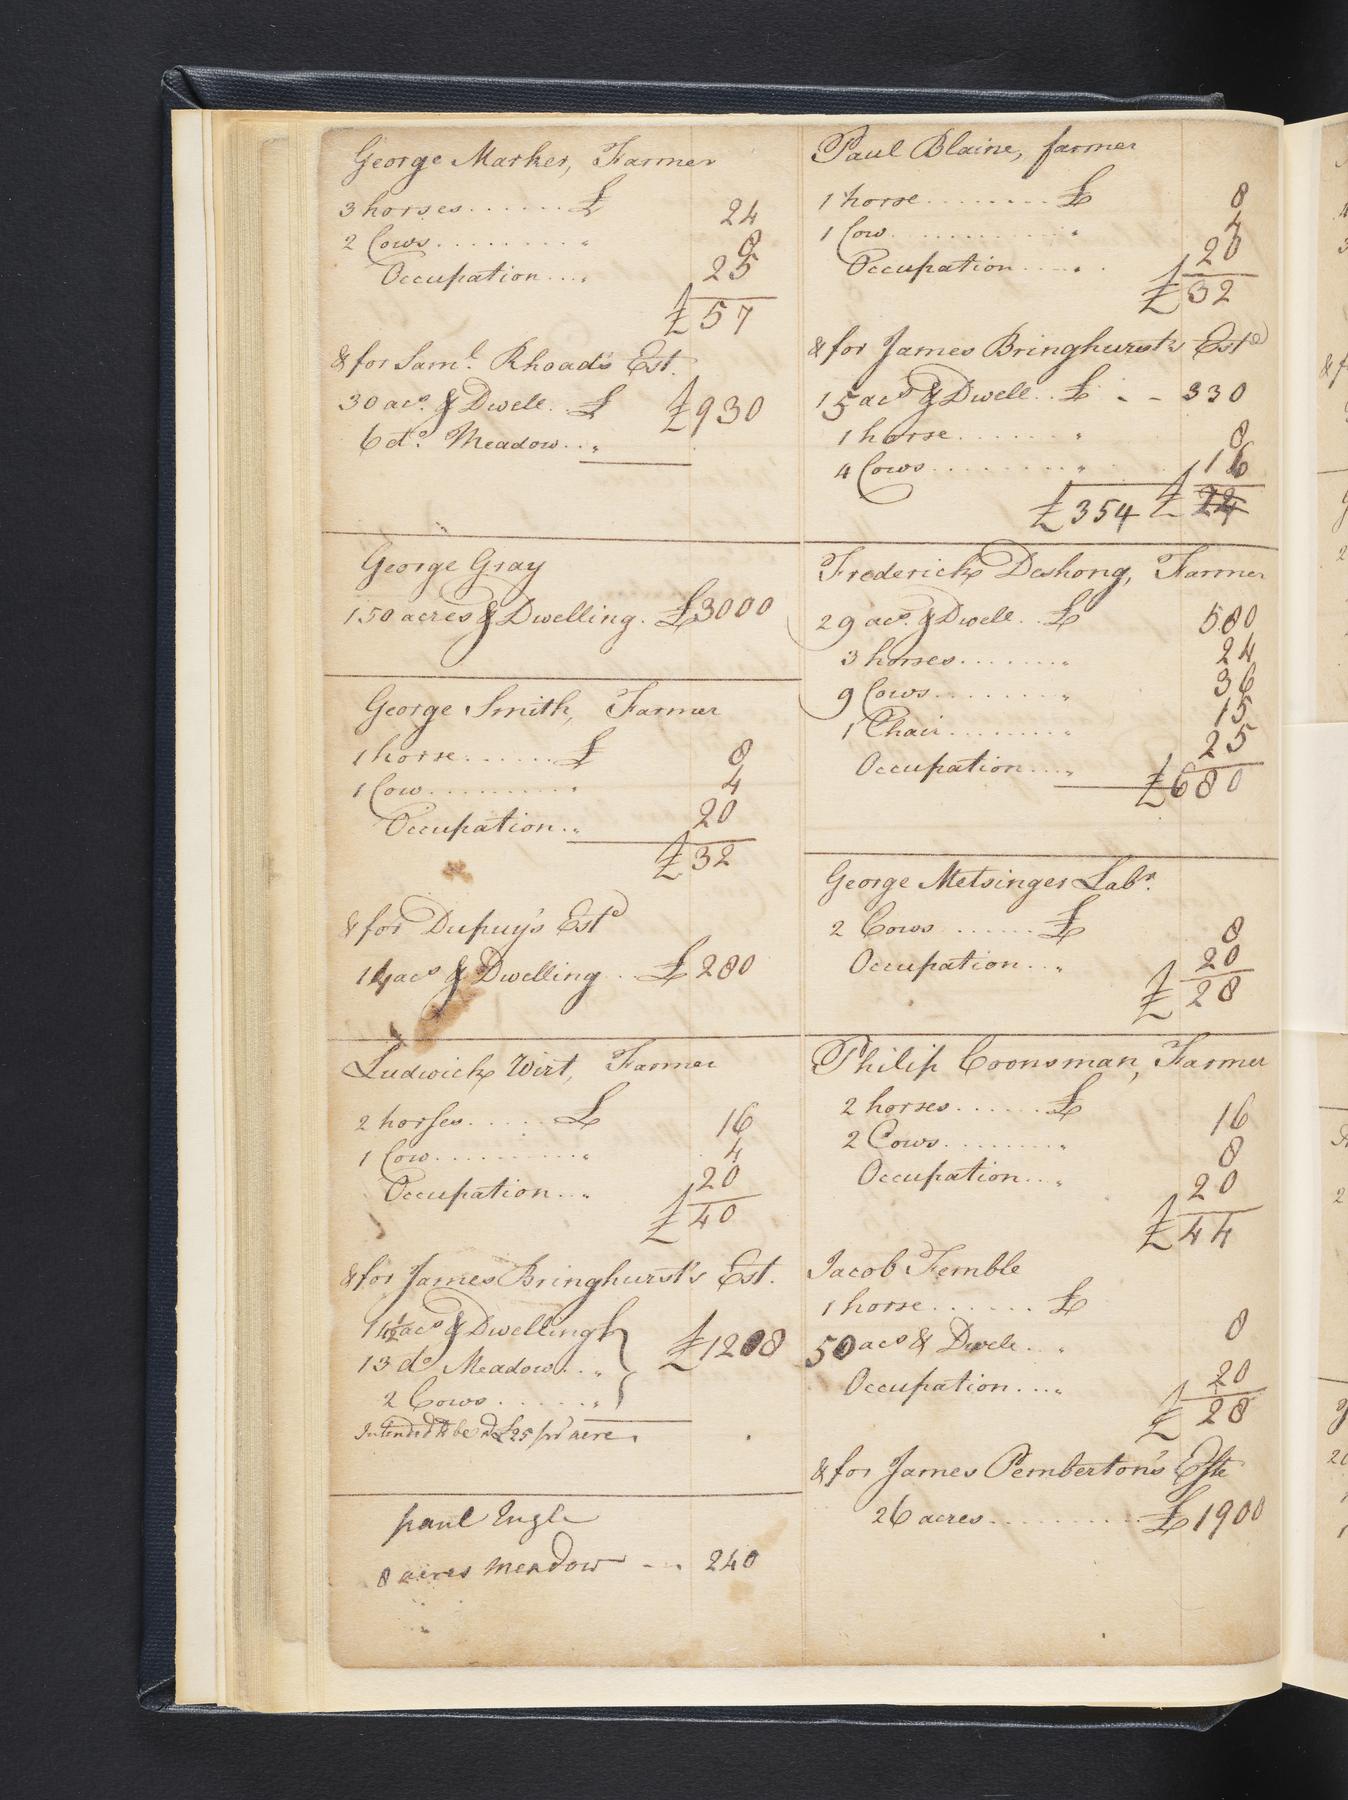 George Marker, Farmer
3 horses ...... £ 24
2 Cows ......... " 8
Occupation .... " 25
£57
& for Saml. Rhoad's Est.
30 acs. & Dwell. .. £ £930
6 do. Meadow .. "
George Gray
150 acres & Dwelling. £3000
George Smith, Farmer
1 horse ...... £ 8
1 Cow .......... " 4
Occupation .. " 20
£32
& for Dupuy's Estd
14 acs & Dwelling .. £280
Ludwick Wirt, Farmer
2 horses ..... £ 16
1 Cow .......... " 4
Occupation ... " 20
£40
& for James Bringhurst's Est.
14½ acs & Dwelling
13 do Meadow .. " £1208
2 Cows ...... "
Intended to be at £25 pr acre.
paul Engle
8 acres meadow --- 240
Paul Blaine, farmer
1 horse ........ £ 8
1 Cow ............ " 4
Occupation .... " 20
£32
& for James Bringhurst's Este
15 acs & Dwell .. £ - - 330
1 horse ....... " 8
4 Cows ......... " 16
£354 £24
Frederick Deshong, Farmer
29 acs. & Dwell .. £ 580
3 horses ....... " 24
9 Cows ......... " 36
1 Chair ........ " 15
Occupation .... " 25
£680
George Metsinger Labr.
2 Cows ...... £ 8
Occupation .. " 20
£28
Philip Coonsman, Farmer
2 horses ...... £ 16
2 Cows ........ " 8
Occupation ... " 20
£44
Jacob Femble
1 horse ...... £ 8
50 acs & Dwele .. "
Occupation .... " 20
£28
& for James Pemberton's Este
26 acres .......... £1900